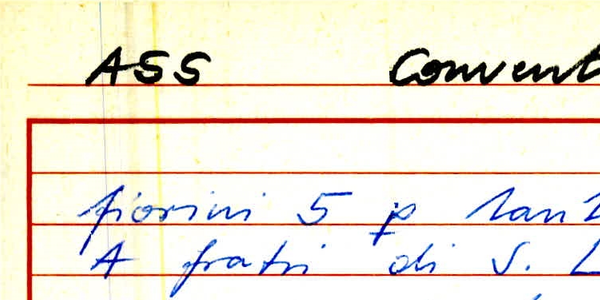 ASS Convent
fiorini 5 p tant
A frati di S. L